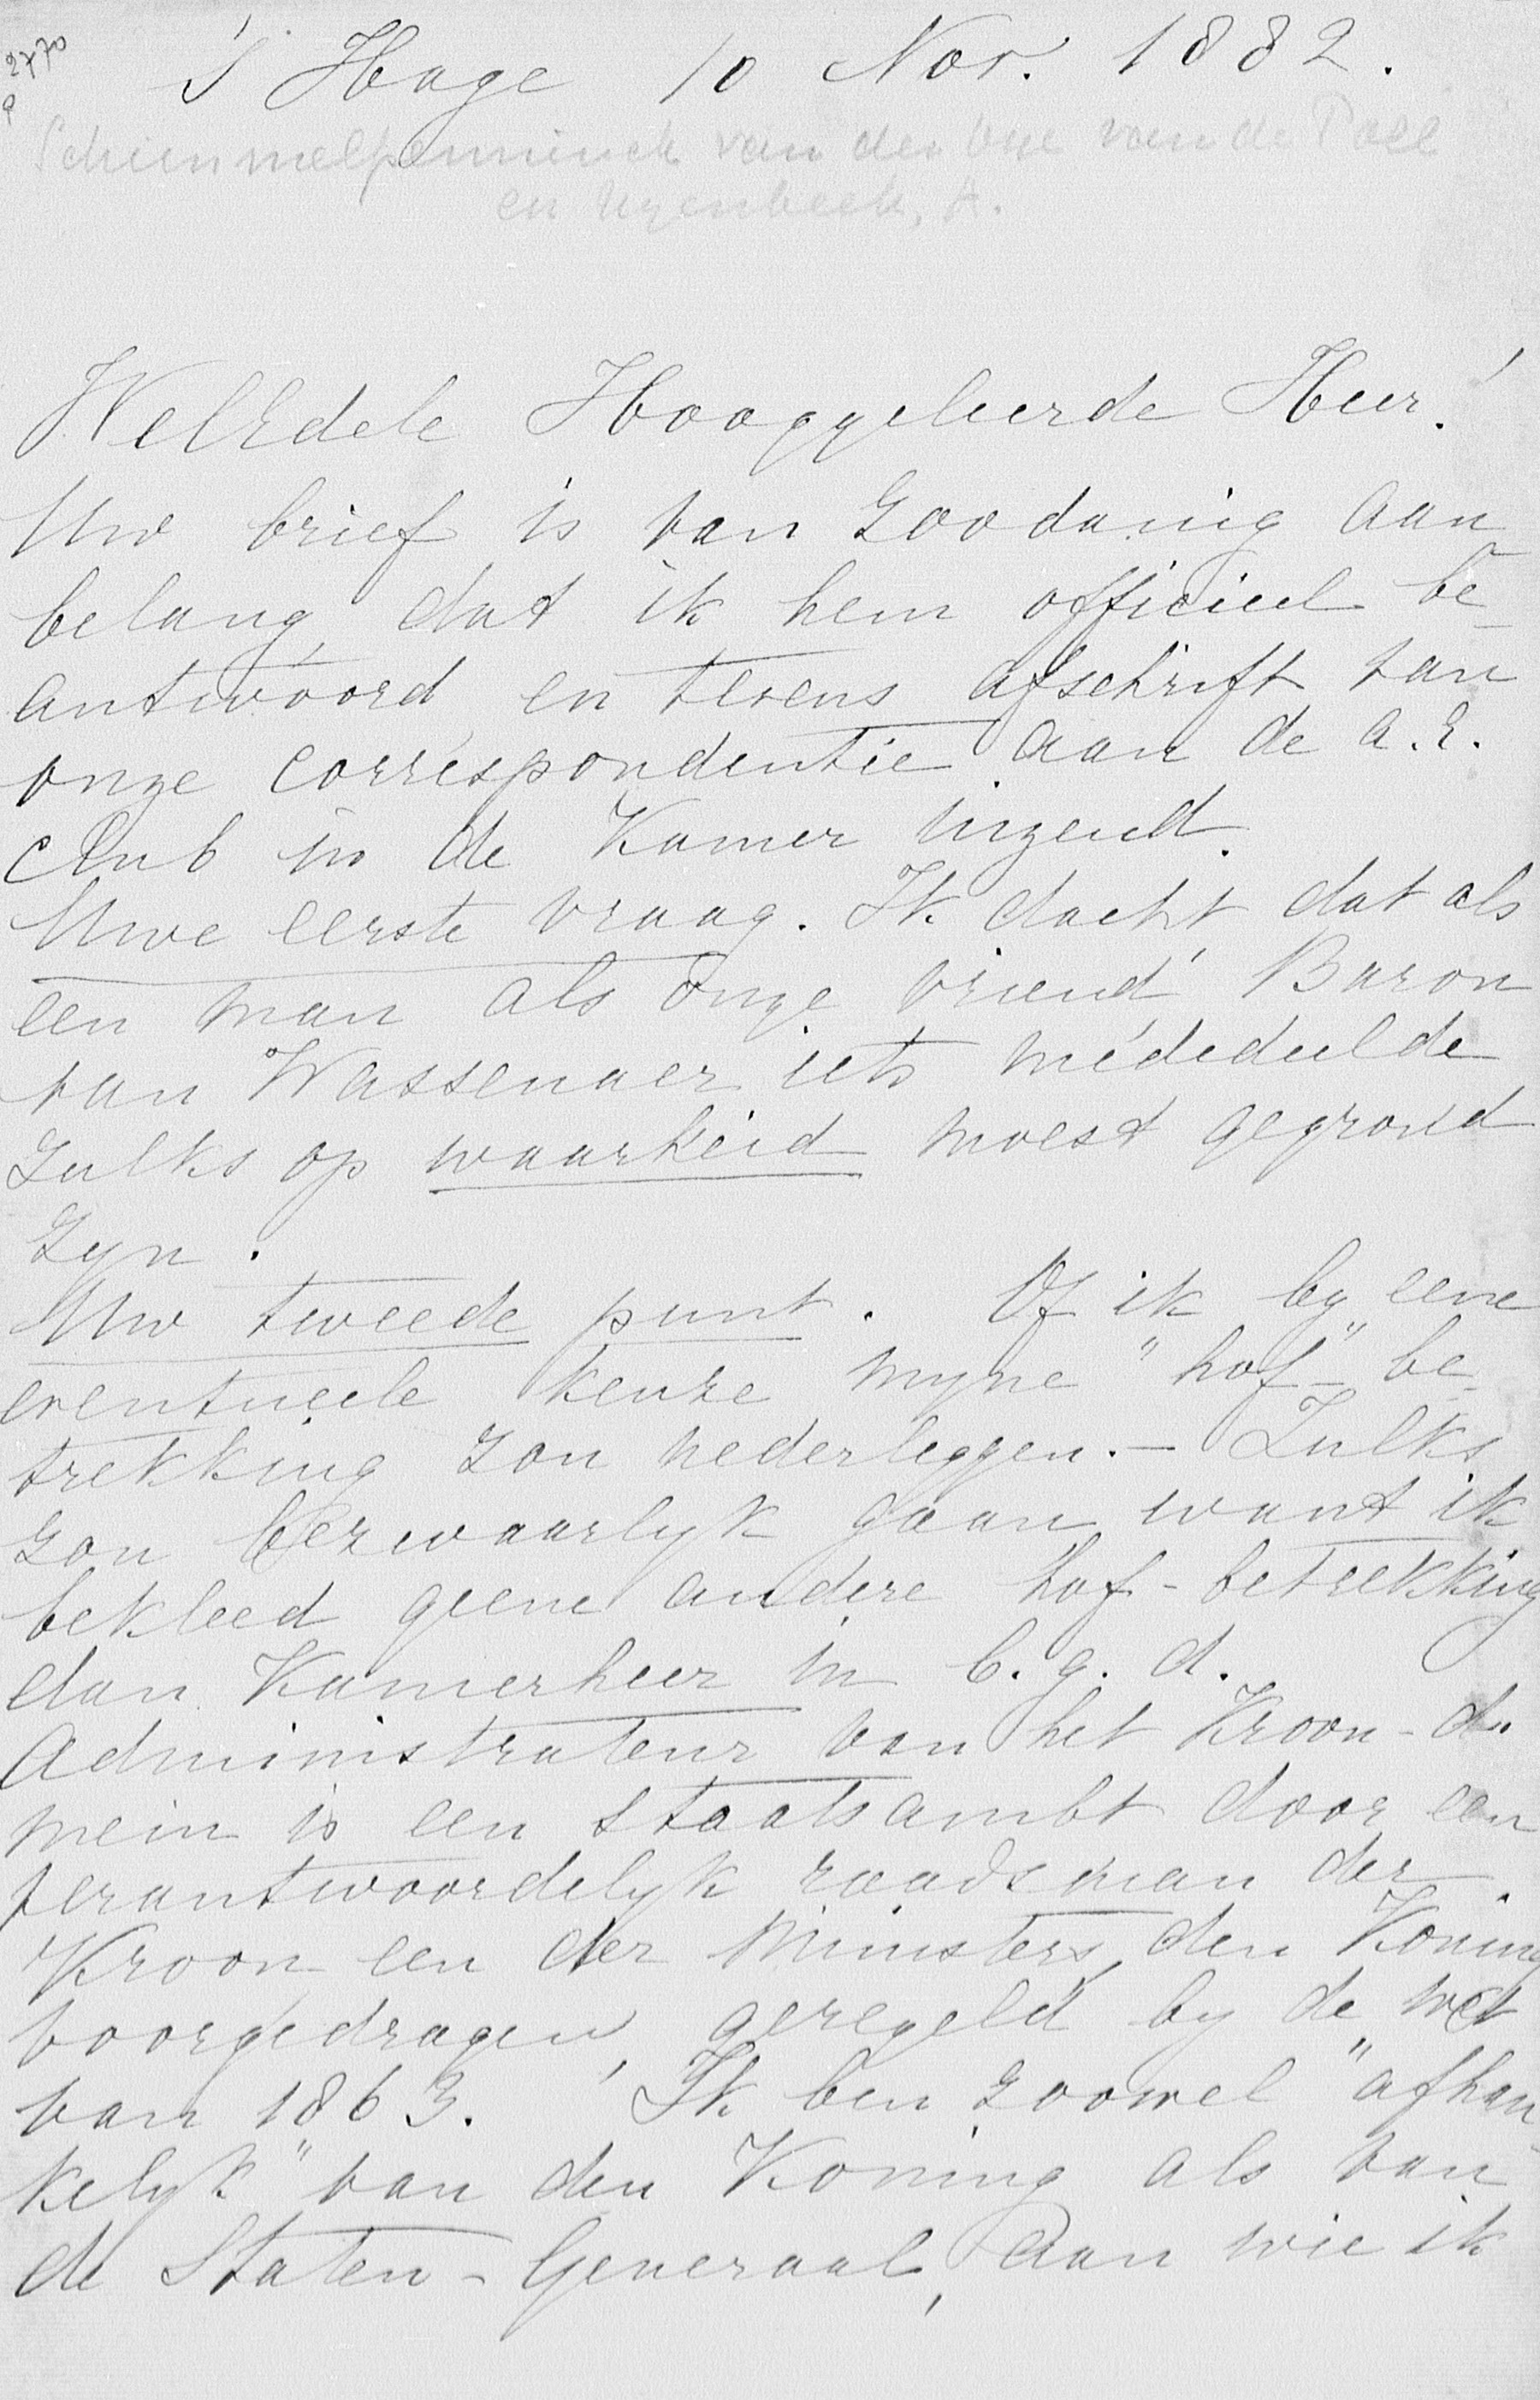 2770
S' Hage 10 Nov. 1882.
Schimmelpenninck van der Oye van de Poll
en Nyenbeek, A.
WelEdele Hooggeleerde Heer!
Uw brief is van zoodanig aan
belang, dat ik hem officieel be-
antwoord en tevens afschrift van
onze correspondentie aan de a.r.
club in de Kamer inzend.
Uwe eerste vraag. Ik dacht, dat als
een man als onze vriend Baron
van Wassenaer iets mededeelde
zulks op waarheid moest gegrond
zyn.
Uw tweede punt. Of ik by eene
eventueele keuze myne "hof-" be-
trekking zou nederleggen. - Zulks
zou bezwaarlyk gaan want ik
bekleed geene andere hof-betrekking
dan Kamerheer in b.g.d.
Administrateur van het Kroon-do
mein is een staatsambt door een
verantwoordelyk raadsman der
Kroon een der Ministers, den Koning
voorgedragen, geregeld by de wet
van 1863. Ik ben zoowel "afhan
kelyk" van den Koning als van
de Staten-Generaal, aan wie ik